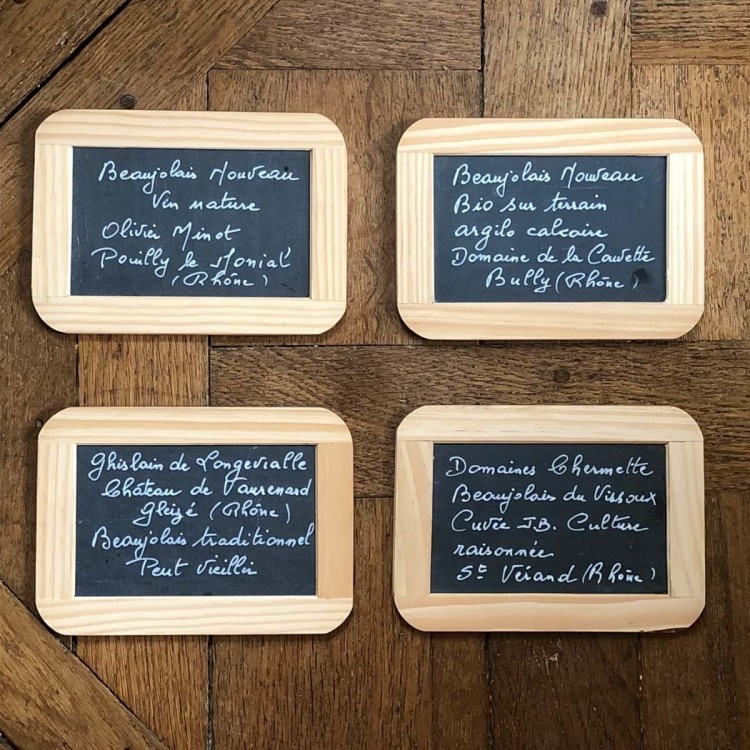 Beaujolais Nouveau
Vin nature
Olivier Minot
Pouilly le Monial
(Rhône)
Beaujolais Nouveau
Bio sur terrain
argilo calcaire
Domaine de la Cauvette
Bully (Rhône)
Ghislain de Longevialle
Château de Vaurenard
Gleizé (Rhône)
Beaujolais traditionnel
Peut vieillir
Domaines Chermette
Beaujolais du Vissoux
Cuvée J.B. Culture
raisonnée
St Vérand (Rhône)